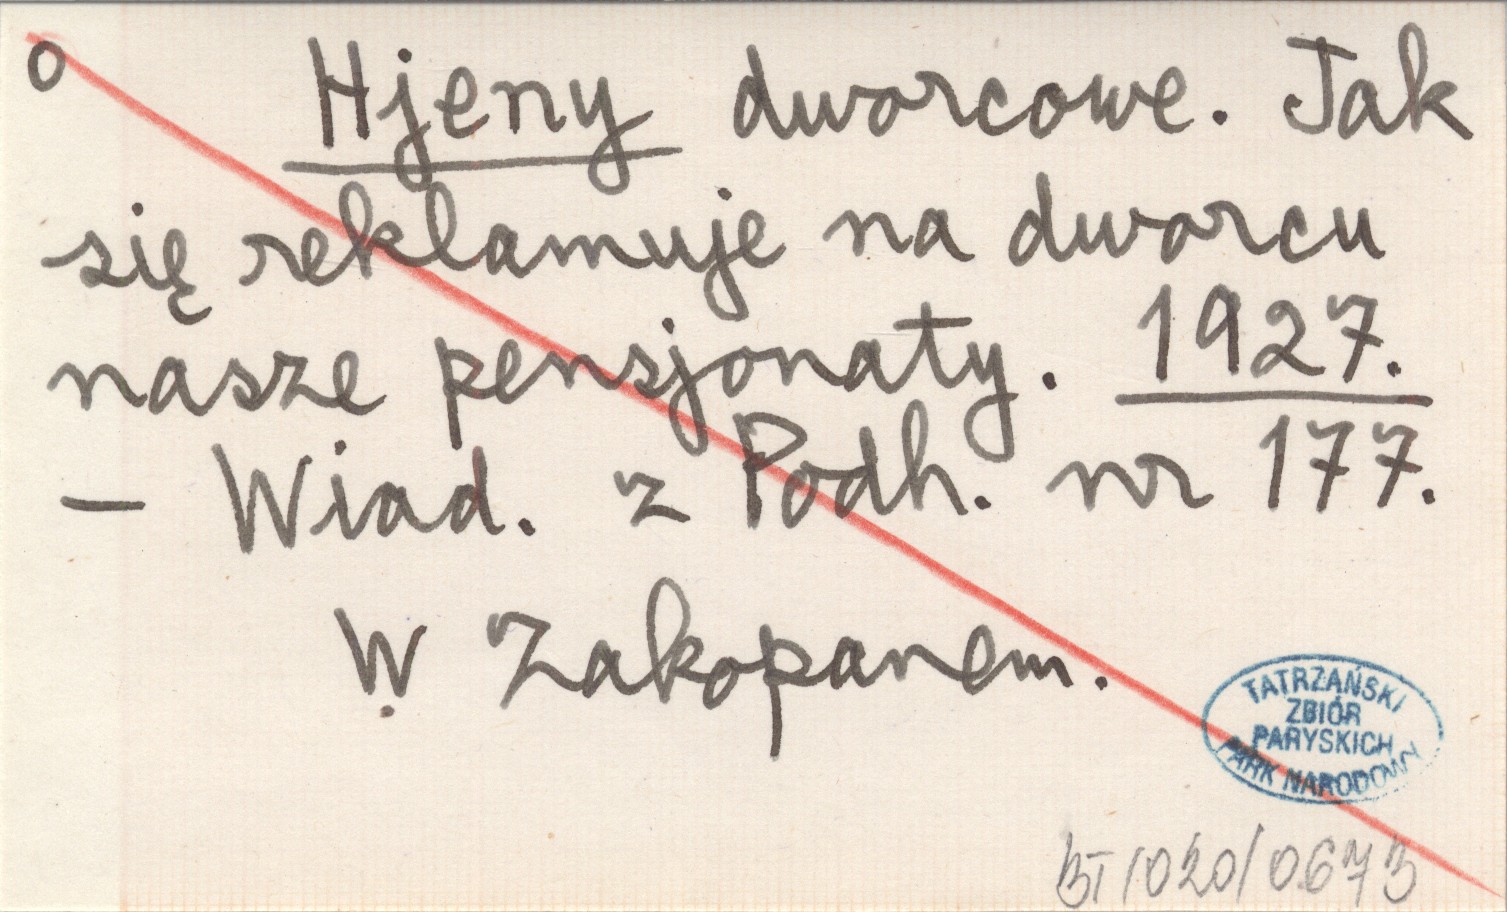 o Hjeny dworcowe. Jak
się reklamuje na dworcu
nasze pensjonaty. 1927.
– Wiad. z Podh. nr 177.
W Zakopanem.
TATRZAŃSKI
ZBIÓR
PARYSKICH
PARK NARODOWY
BT/020/0673